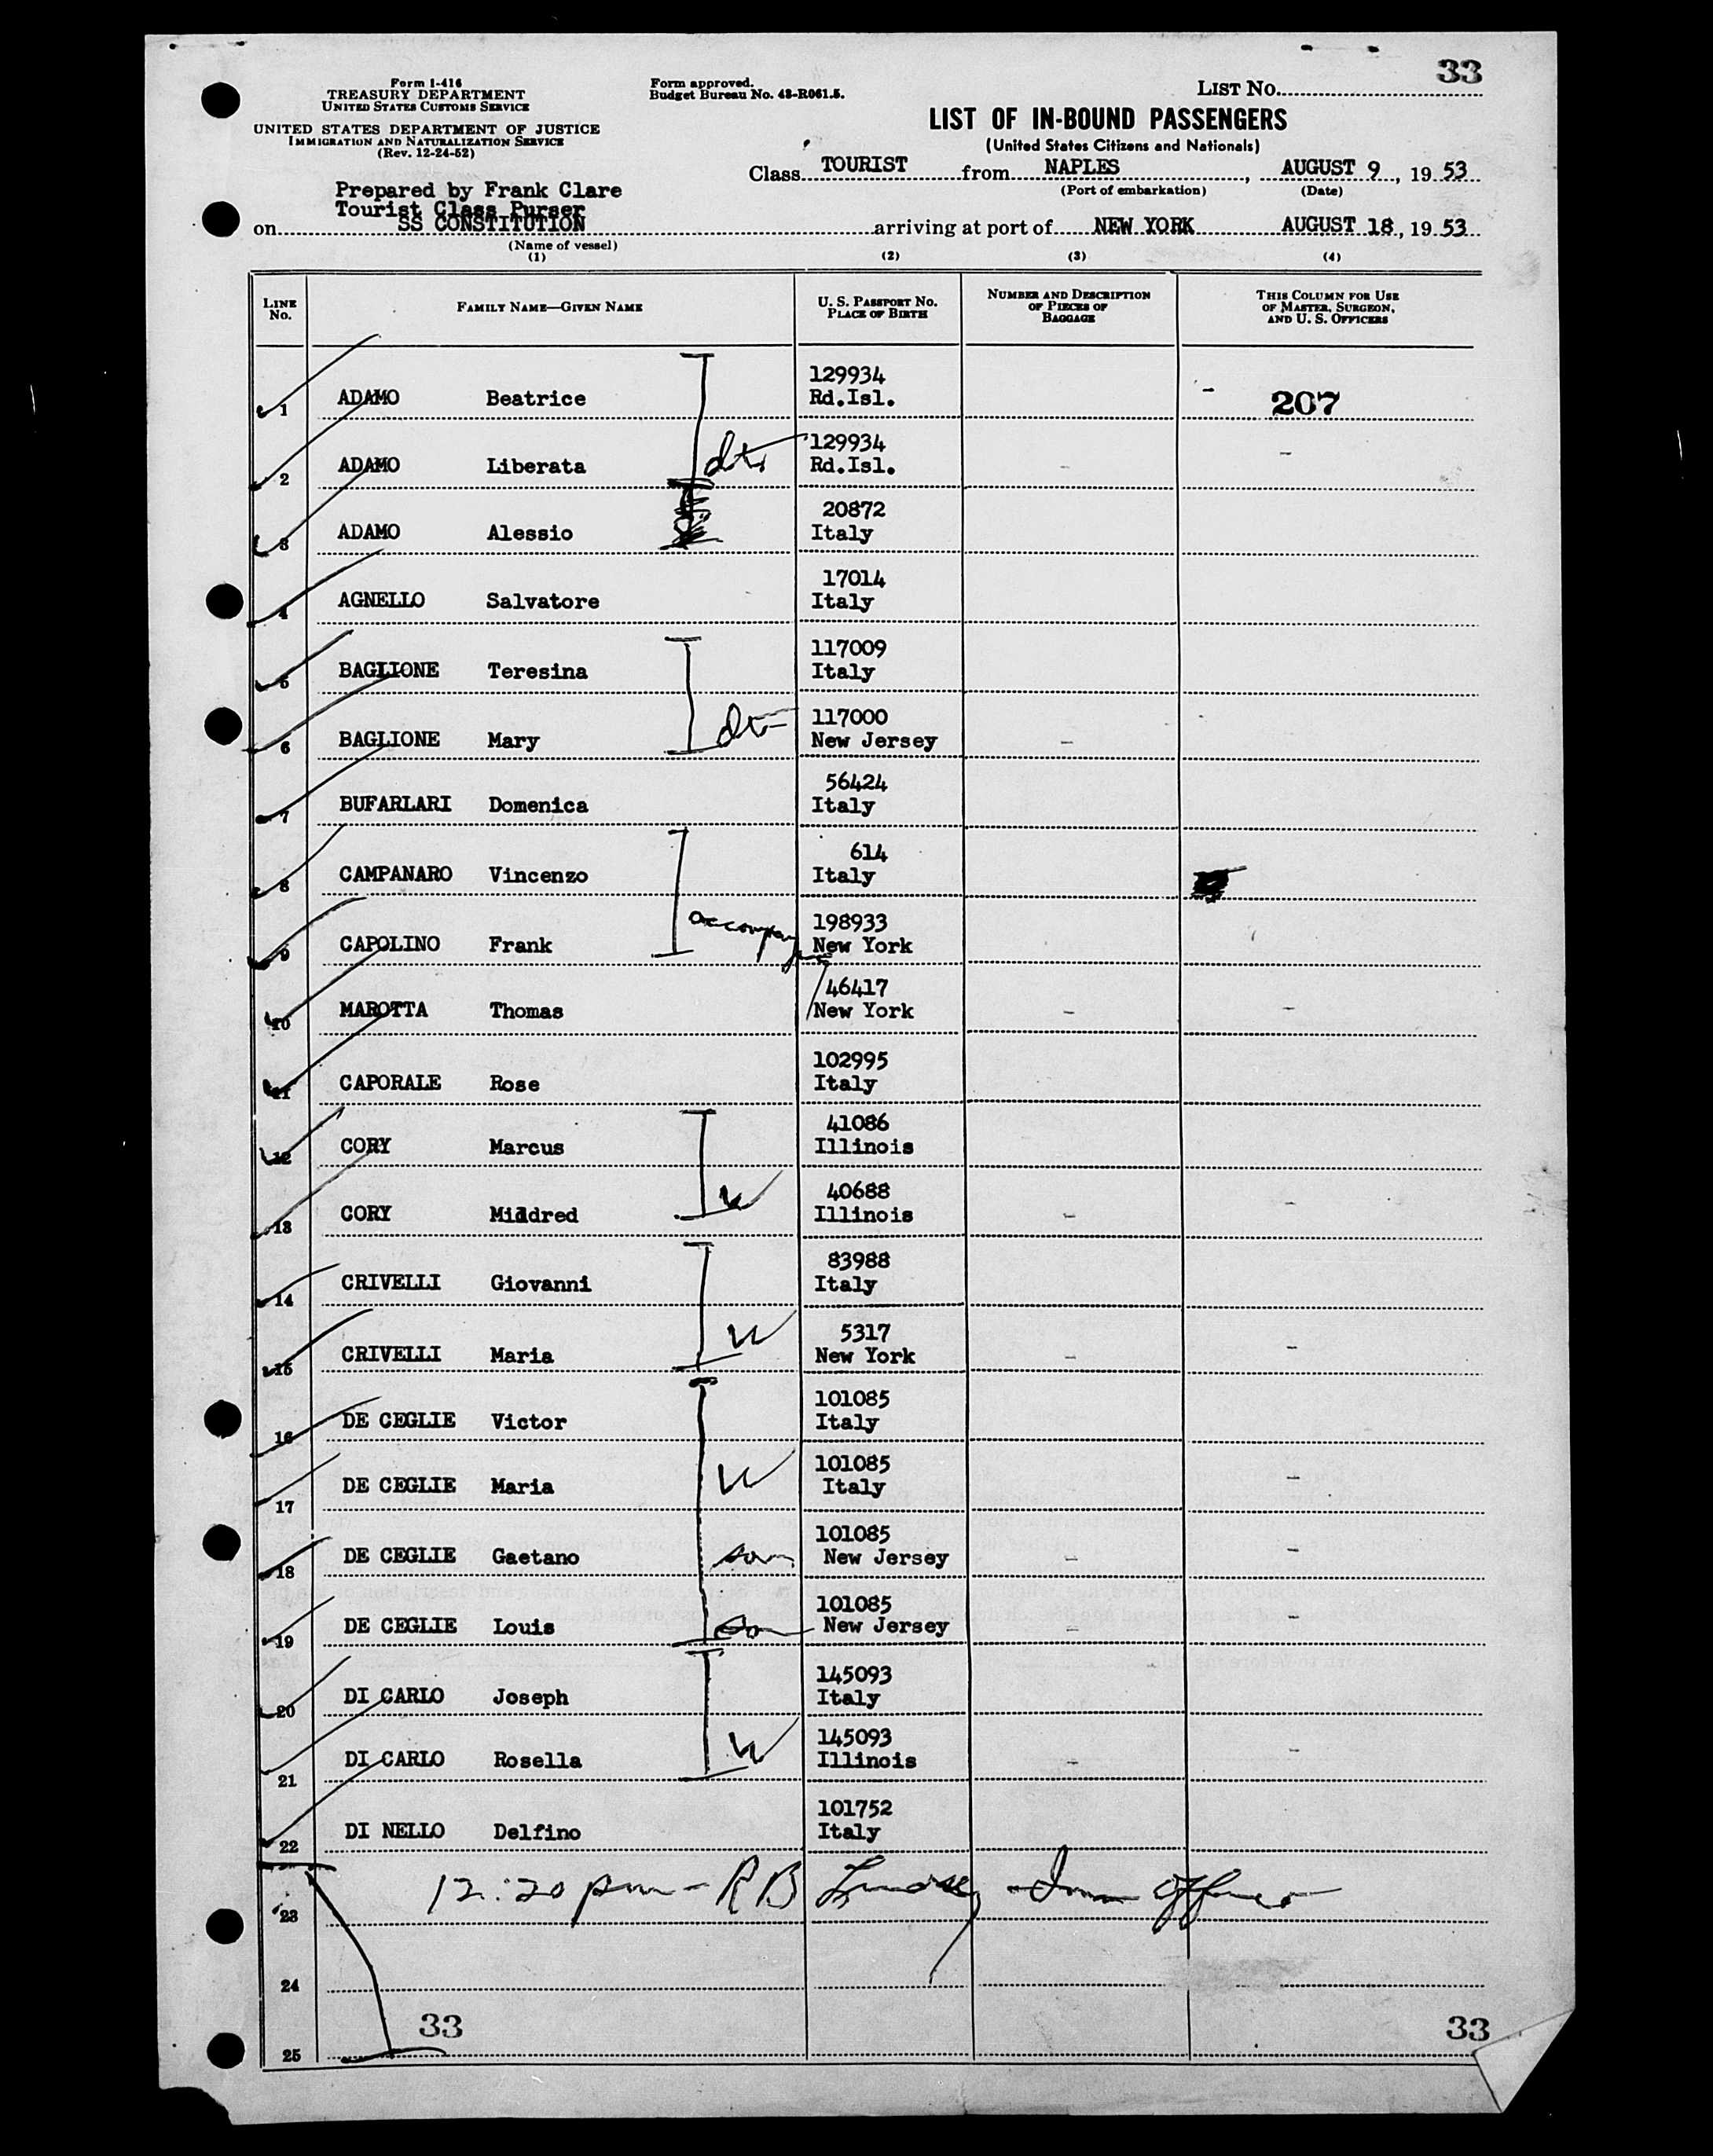 33
Form I-416
TREASURY DEPARTMENT
UNITED STATES CUSTOMS SERVICE
UNITED STATES DEPARTMENT OF JUSTICE
IMMIGRATION AND NATURALIZATION SERVICE
(Rev. 12-24-52)
Form approved.
Budget Bureau No. 43-R061.5.
LIST NO.
LIST OF IN-BOUND PASSENGERS
(United States Citizens and Nationals)
Class TOURIST from NAPLES, AUGUST 9, 19 53
(Port of embarkation) (Date)
Prepared by Frank Clare
Tourist Class Purser
on SS CONSTITUTION arriving at port of NEW YORK AUGUST 18, 19 53
(Name of vessel)
(1) (2) (3) (4)
LINE No. FAMILY NAME—GIVEN NAME U. S. PASSPORT NO. PLACE OF BIRTH NUMBER AND DESCRIPTION OF PIECES OF BAGGAGE THIS COLUMN FOR USE OF MASTER, SURGEON, AND U. S. OFFICERS
1 ADAMO Beatrice 129934 Rd.Isl. - 207
2 ADAMO Liberata dtr 129934 Rd.Isl. - -
3 ADAMO Alessio 20872 Italy
4 AGNELLO Salvatore 17014 Italy
5 BAGLIONE Teresina 117009 Italy
6 BAGLIONE Mary dtr 117000 New Jersey - -
7 BUFARLARI Domenica 56424 Italy
8 CAMPANARO Vincenzo 614 Italy
9 CAPOLINO Frank accompanying 198933 New York
10 MAROTTA Thomas 46417 New York - -
11 CAPORALE Rose 102995 Italy
12 CORY Marcus 41086 Illinois
13 CORY Mildred W 40688 Illinois - -
14 CRIVELLI Giovanni 83988 Italy
15 CRIVELLI Maria W 5317 New York - -
16 DE CEGLIE Victor 101085 Italy
17 DE CEGLIE Maria W 101085 Italy -
18 DE CEGLIE Gaetano son 101085 New Jersey - -
19 DE CEGLIE Louis son 101085 New Jersey - -
20 DI CARLO Joseph 145093 Italy
21 DI CARLO Rosella W 145093 Illinois - -
22 DI NELLO Delfino 101752 Italy
23 12:20 pm - R B Imm Officer
24
25
33
33